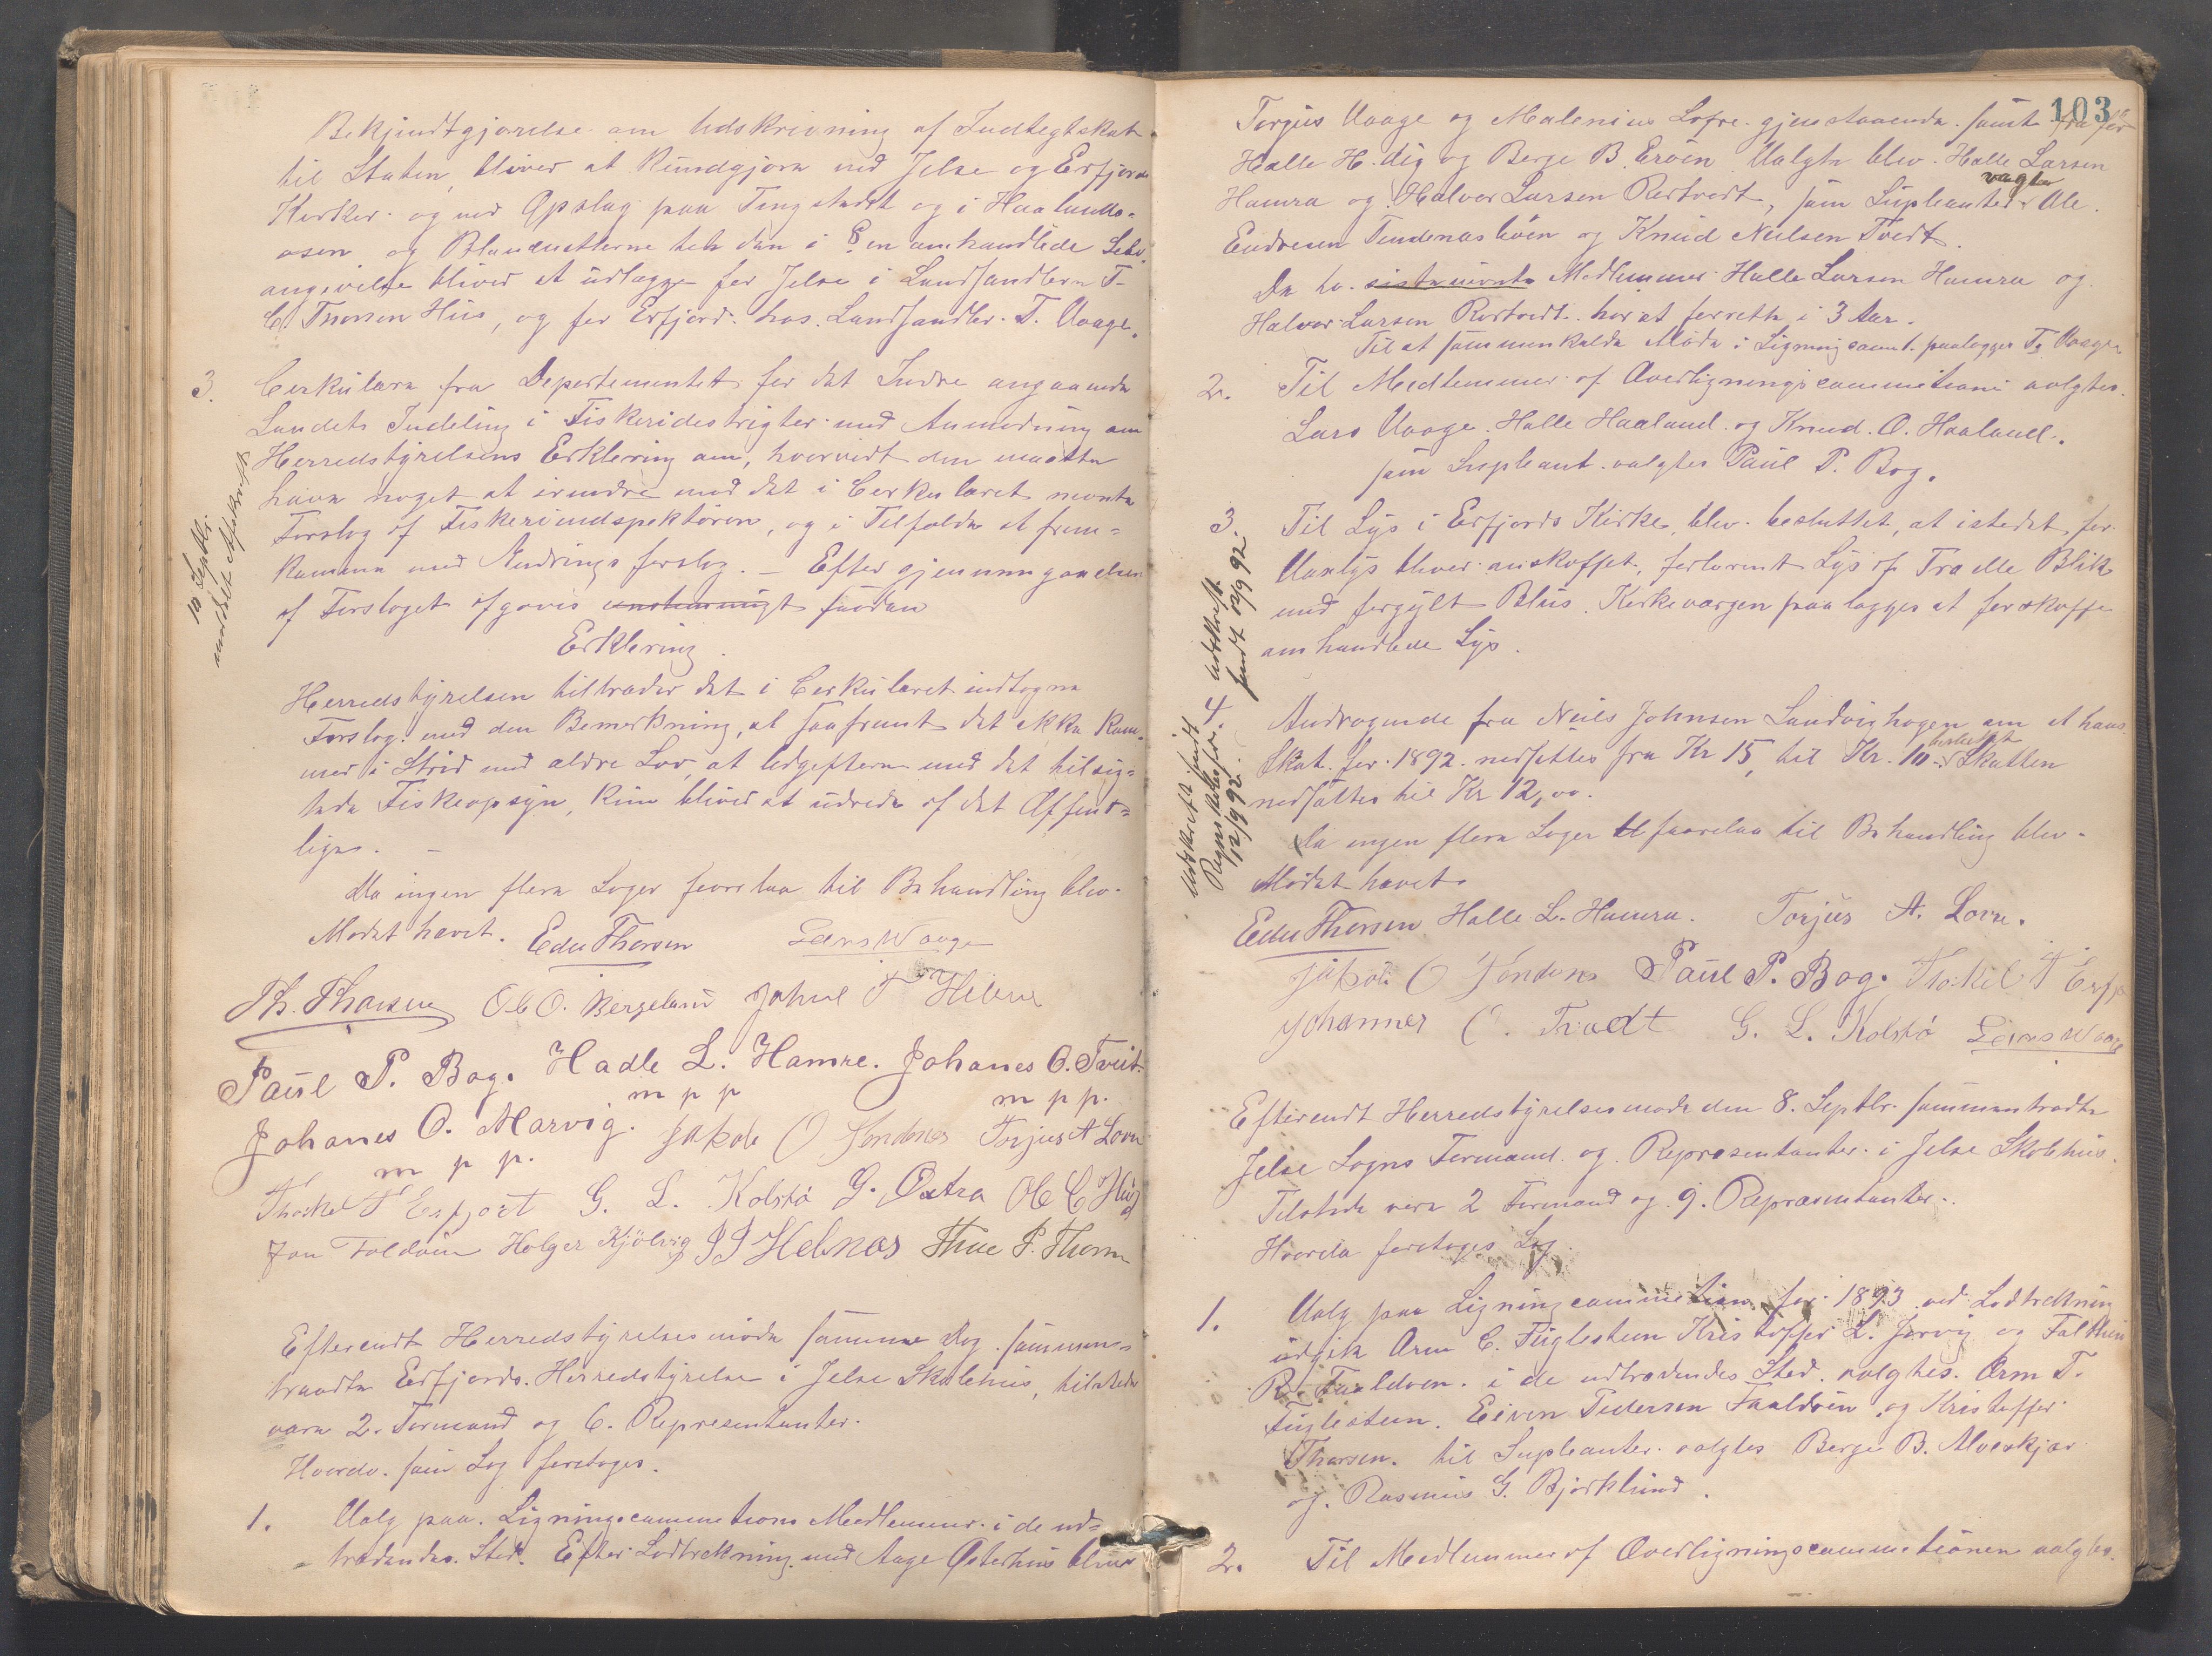 Bekjendtgjørelse om Udskrivning af Indtegtskat
til Staten, bliver at kundgjøra ved Jelse og Erfjords
Kirker og ved Opslag paa Tingstedet og i Haalands-
osen og Blanketterne tel den i § en omhandlede Selv-
angivelse bliver at udlægge for Jelse i Landhandler T.
C. Thorsen Hus, og for Erfjord hos Landhandler T. Vaage.
3. Cerkulære fra Departementet for det Indre angaaende
Landets Indeling i Fiskeridestrigter med Anmodning om
Herredstyrelsens Erklering om, hvorvidt den maatte
have noget at erindre mod det i Cerkularet nevnte
Forslag af Fiskeriindspektøren, og i Tilfælde at frem-
komme med Andrings forslag. — Efter gjennemgaaelsen
af Forslaget afgaves enstemmigt saadan
Erklering.
10 Septbr.
meddelt Afskrift
Herredstyrelsen tiltræder det i Cerkularet indtagne
Forslag med den Bemerkning, at saafremt det ikke kom-
mer i Strid med ældre Lov, at Udgefterne med det tilsig-
tede Fiskeopsyn, kun bliver at udrede af det Offent-
lige. —
Da ingen flere Sager forelaa til Behandling blev
Mødet hævet. Edu Thorsen Lars Waage
Th. Thorsen Ole O. Bergeland Johne T Hebnes
Paul P. Bog. Hadle L. Hamre. Johanes O. Tveit.
m p p m p p.
Johanes O. Marvig. Jakob O Søndenes Torjus A Lovre
m p p.
Thorkel T Erfjort G. L. Kolstø G. Østrø Ole C Hus
Jon Foldøen Holger Kjølvig J J Hebnes Thue P. Thorsen
Efterendt Herredstyrelsesmøde samme Dag sammen-
traadte Erfjords Herredstyrelse i Jelse Skolehus, tilstede
vare 2 Formænd og 6 Representanter.
Hvorda som Sag foretoges.
1. Valg paa Ligningscommetions Medlemmer i de ud-
trædendes Sted. Efter Lodtrekning med Aage Østerhus blev
103
Torjus Vaage og Malenius Lofre gjenstaaende samt fra før
Halle H. Eig og Berge B. Erøen Valgte blev Halle Larsen
Hamra og Halvor Larsen Rørtvedt, som Supleanter valgte Ole
Endresen Tendenasløen og Knud Neilsen Tvedt.
De to sistnævnte Medlemmer Halle Larsen Hamra og
Halvor Larsen Rørtvedt har at forrette i 3 Aar.
Til at sammenkalde Møde i Ligningscomt. paalægges T. Vaage
2. Til Medlemmer af Overligningscommetione valgtes
Lars Vaage. Halle Haaland og Knud O. Haaland.
som Supleant valgtes Paul P. Bog.
3. Til Lys i Erfjords Kirke, blev besluttet, at istedet for
Vaxlys bliver anskaffet, forlorent Lys af Træ elle Blik
med forgylt Blus. Kirkeværgen paalægges at forskaffe
omhandlede Lys.
Udskrift
sendt 12/9 92.
4. Andragende fra Neils Johnsen Sandvighagen om at hans
Skat for 1892 nedsettes fra Kr 15, til Kr. 10 - besluttet Skatten
nedsattes til Kr 12,00.
Udskrift sendt
Regnskabsfør.
12/9 92.
Da ingen flere Sager forelaa til Behandling blev
Mødet hævet.
Edu Thorsen Halle L. Hamra. Torjus A. Lovre.
Jakob O Søndenes Paul P. Bog. Thorkel T Erfj
Johannes O. Tvedt G. L. Kolstø Lars Waage
Efterendt Herredstyrelsesmøde den 8. Septbr. sammentradte
Jelse Sogns Formænd og Representanter i Jelse Skolehus.
Tilstede vare 2 Formænd og 9. Repræsentanter.
Hvorda foretoges Sag.
1. Valg paa Ligningscommetion for 1893 ved Lodtrekning
udgik Orm C. Fuglesteen Kristoffer L. Jørvig og
R. Faaldøen. i de udtrædendes Sted. valgtes. Orm T.
Fuglesteen. Eiven Pedersen Faaldøen og Kristoffer
Thorsen. til Supleanter valgtes Berge B. Alveskjær
og Rasmus G. Bjørklund.
2. Til Medlemmer af Overligningscommetionen valgtes